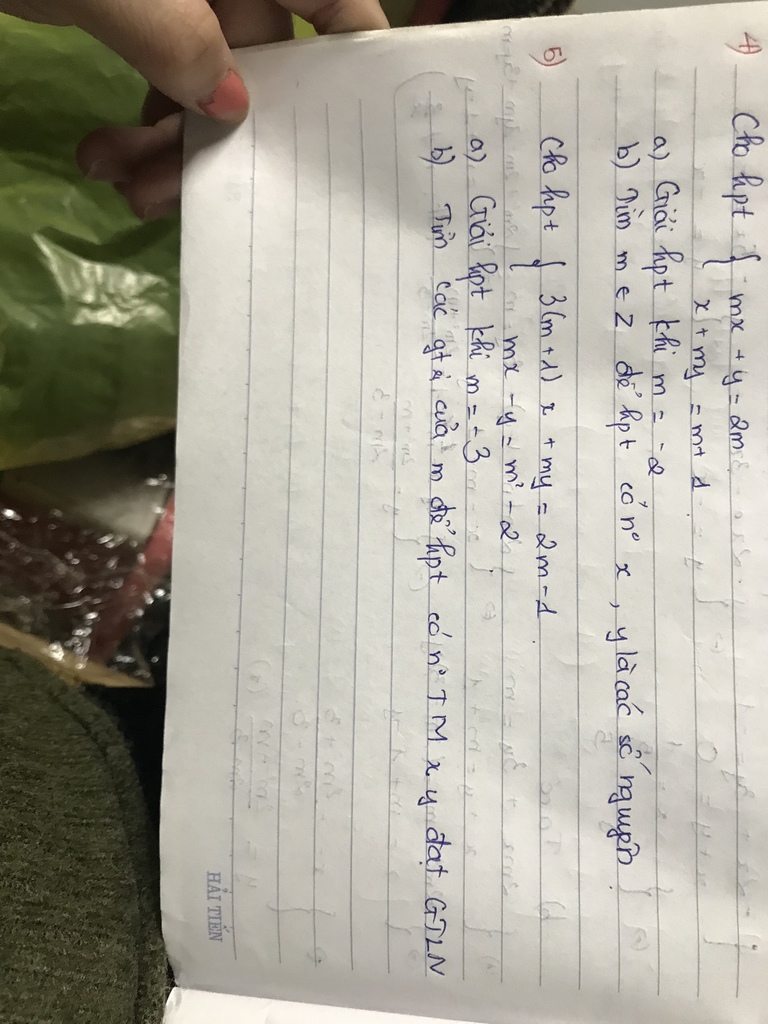 4) Cho hpt { mx + y = 2m
x + my = m + 1.
a) Giải hpt khi m = -2
b) Tìm m ∈ Z để hpt có n° x, y là các số nguyên.
5) Cho hpt { 3(m+1) x + my = 2m - 1.
mx - y = m² - 2
a) Giải hpt khi m = -3
b) Tìm các gtrị của m để hpt có n° TM x y đạt GTLN
HẢI TIẾN